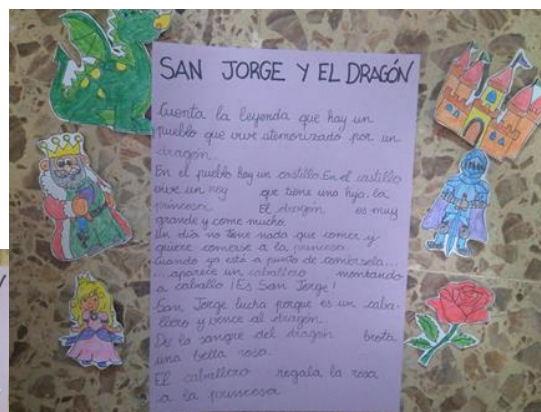 SAN JORGE Y EL DRAGÓN
Cuenta la leyenda que hay un
pueblo que vive atemorizado por un
dragón.
En el pueblo hay un castillo. En el castillo
vive un rey que tiene una hija, la
princesa. El dragón es muy
grande y come mucho.
Un día no tiene nada que comer y
quiere comerse a la princesa.
Cuando ya está a punto de comérsela...
...aparece un caballero montando
a caballo ¡Es San Jorge!
San Jorge lucha porque es un caba-
llero y vence al dragón.
De la sangre del dragón brota
una bella rosa.
El caballero regala la rosa
a la princesa.